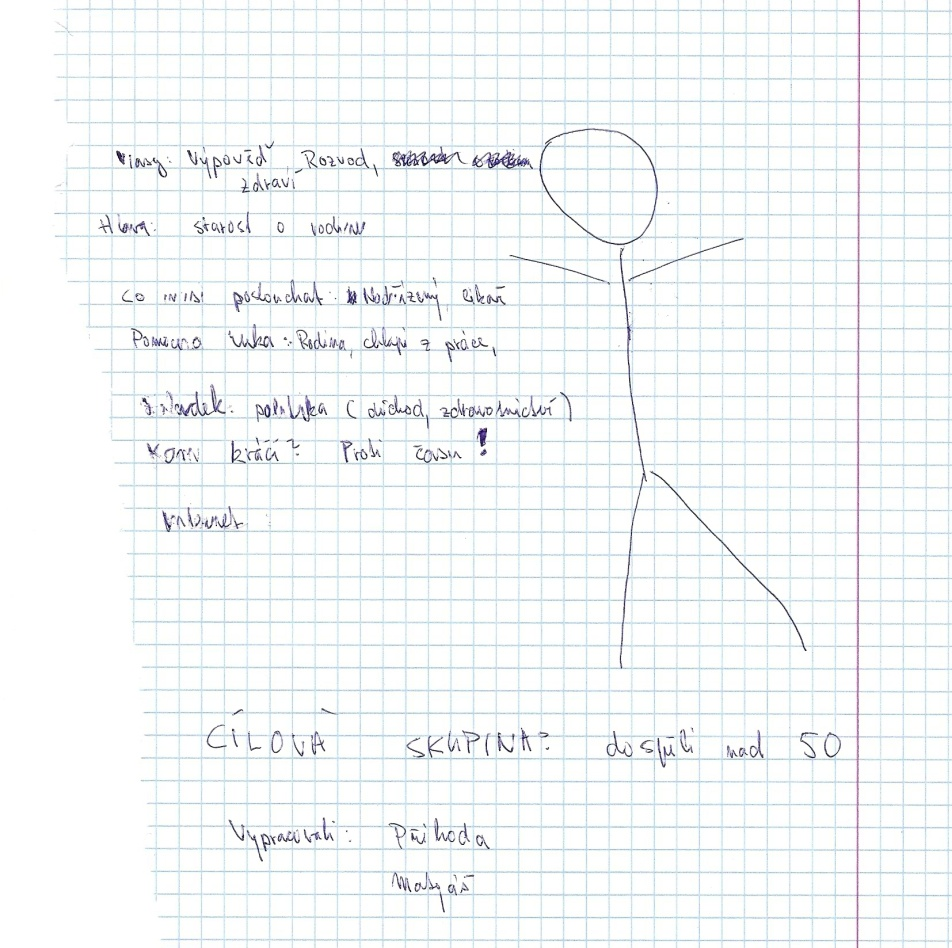 Vlasy: Výpověď, Rozvod,
zdraví
Hlava: starost o rodinu
Co musí poslouchat: Nadřízený, lékař
Pomocná ruka: Rodina, chlapi z práce,
žaludek: politika (důchod, zdravotnictví)
Kam kráčí? Proti času!
CÍLOVÁ SKUPINA? dospělí nad 50
Vypracovali: Příhoda